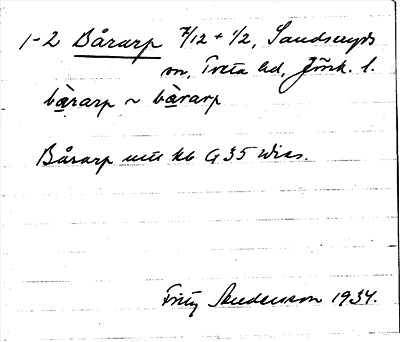 1-2 Bårarp 7/12 + 1/2, Sandseryds
sn, Tveta hd, Jönk. l.
bàrarp ~ bàrarp
Bårarp utt kb G 35 Wiss.
Fritz Andersson 1934.